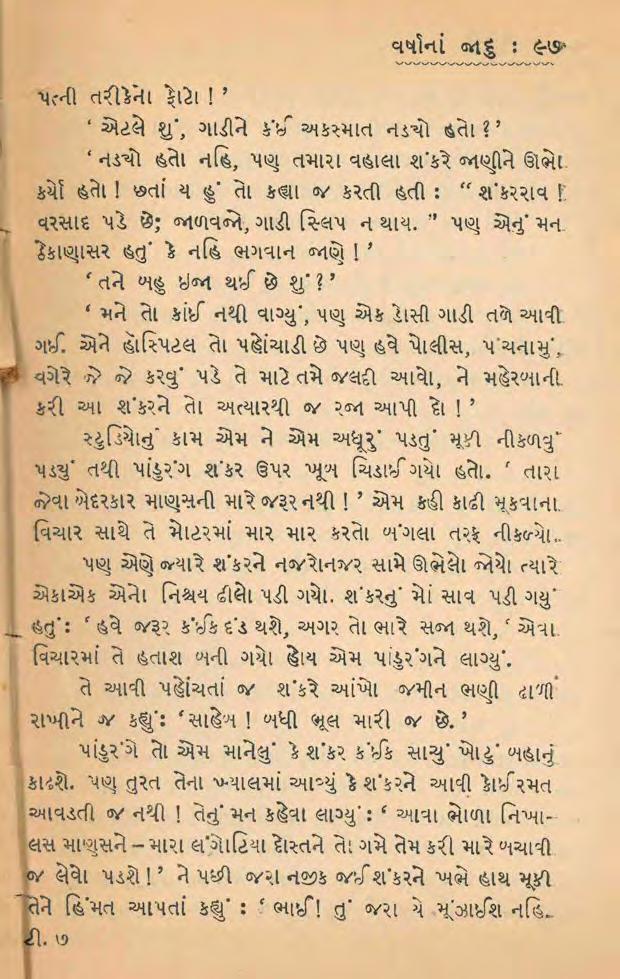 વર્ષાનાં જાદુ : ૯૭
પત્ની તરીકેનો ફોટો ! ’
‘ એટલે શું, ગાડીને કંઈ અકસ્માત નડચો હતો ? ’
‘ નડચો હતો નહિ, પણ તમારા વહાલા શંકરે જાણીને ઊભો
કર્યો હતો ! છતાં ય હું તો કહ્યા જ કરતી હતી : “ શંકરરાવ !
વરસાદ પડે છે; જાળવજો, ગાડી સ્લિપ ન થાય. ” પણ એનું મન
ઠેકાણાસર હતું કે નહિ ભગવાન જાણે ! ’
‘ તને બહુ ઇજા થઈ છે શું ? ’
‘ મને તો કાંઈ નથી વાગ્યું, પણ એક ડોસી ગાડી તળે આવી
ગઈ. એને હૉસ્પિટલ તો પહોંચાડી છે પણ હવે પોલીસ, પંચનામું,
વગેરે જે જે કરવું પડે તે માટે તમે જલદી આવો, ને મહેરબાની
કરી આ શંકરને તો અત્યારથી જ રજા આપી દો ! ’
સ્ટુડિયોનું કામ એમ ને એમ અધૂરું પડતું મૂકી નીકળવું
પડયું તથી પાંડુરંગ શંકર ઉપર ખૂબ ચિડાઈ ગયો હતો. ‘ તારા
જેવા બેદરકાર માણસની મારે જરૂર નથી ! ’ એમ કહી કાઢી મૂકવાના
વિચાર સાથે તે મોટરમાં માર માર કરતો બંગલા તરફ નીકળ્યો.
પણ એણે જ્યારે શંકરને નજરોનજર સામે ઊભેલો જોયો ત્યારે
એકાએક એનો નિશ્ચય ઢીલો પડી ગયો. શંકરનું મોં સાવ પડી ગયું
હતું : ‘ હવે જરૂર કંઈક દંડ થશે, અગર તો ભારે સજા થશે, ‘ એવા
વિચારમાં તે હતાશ બની ગયો હોય એમ પાંડુરંગને લાગ્યું.
તે આવી પહોંચતાં જ શંકરે આંખો જમીન ભણી ઢાળી
રાખીને જ કહ્યું : ‘ સાહેબ ! બધી ભૂલ મારી જ છે. ’
પાંડુરંગે તો એમ માનેલું કે શંકર કંઈક સાચું ખોટું બહાનું
કાઢશે. પણ તુરત તેના ખ્યાલમાં આવ્યું કે શંકરને આવી કોઈ રમત
આવડતી જ નથી ! તેનું મન કહેવા લાગ્યું : ‘ આવા ભોળા નિખા-
લસ માણસને – મારા લંગોટિયા દોસ્તને તો ગમે તેમ કરી મારે બચાવી
જ લેવો પડશે ! ’ ને પછી જરા નજીક જઈ શંકરને ખભે હાથ મૂકી
તેને હિંમત આપતાં કહ્યું : ‘ ભાઈ ! તું જરા યે મૂંઝાઈશ નહિ.
ટી. ૭